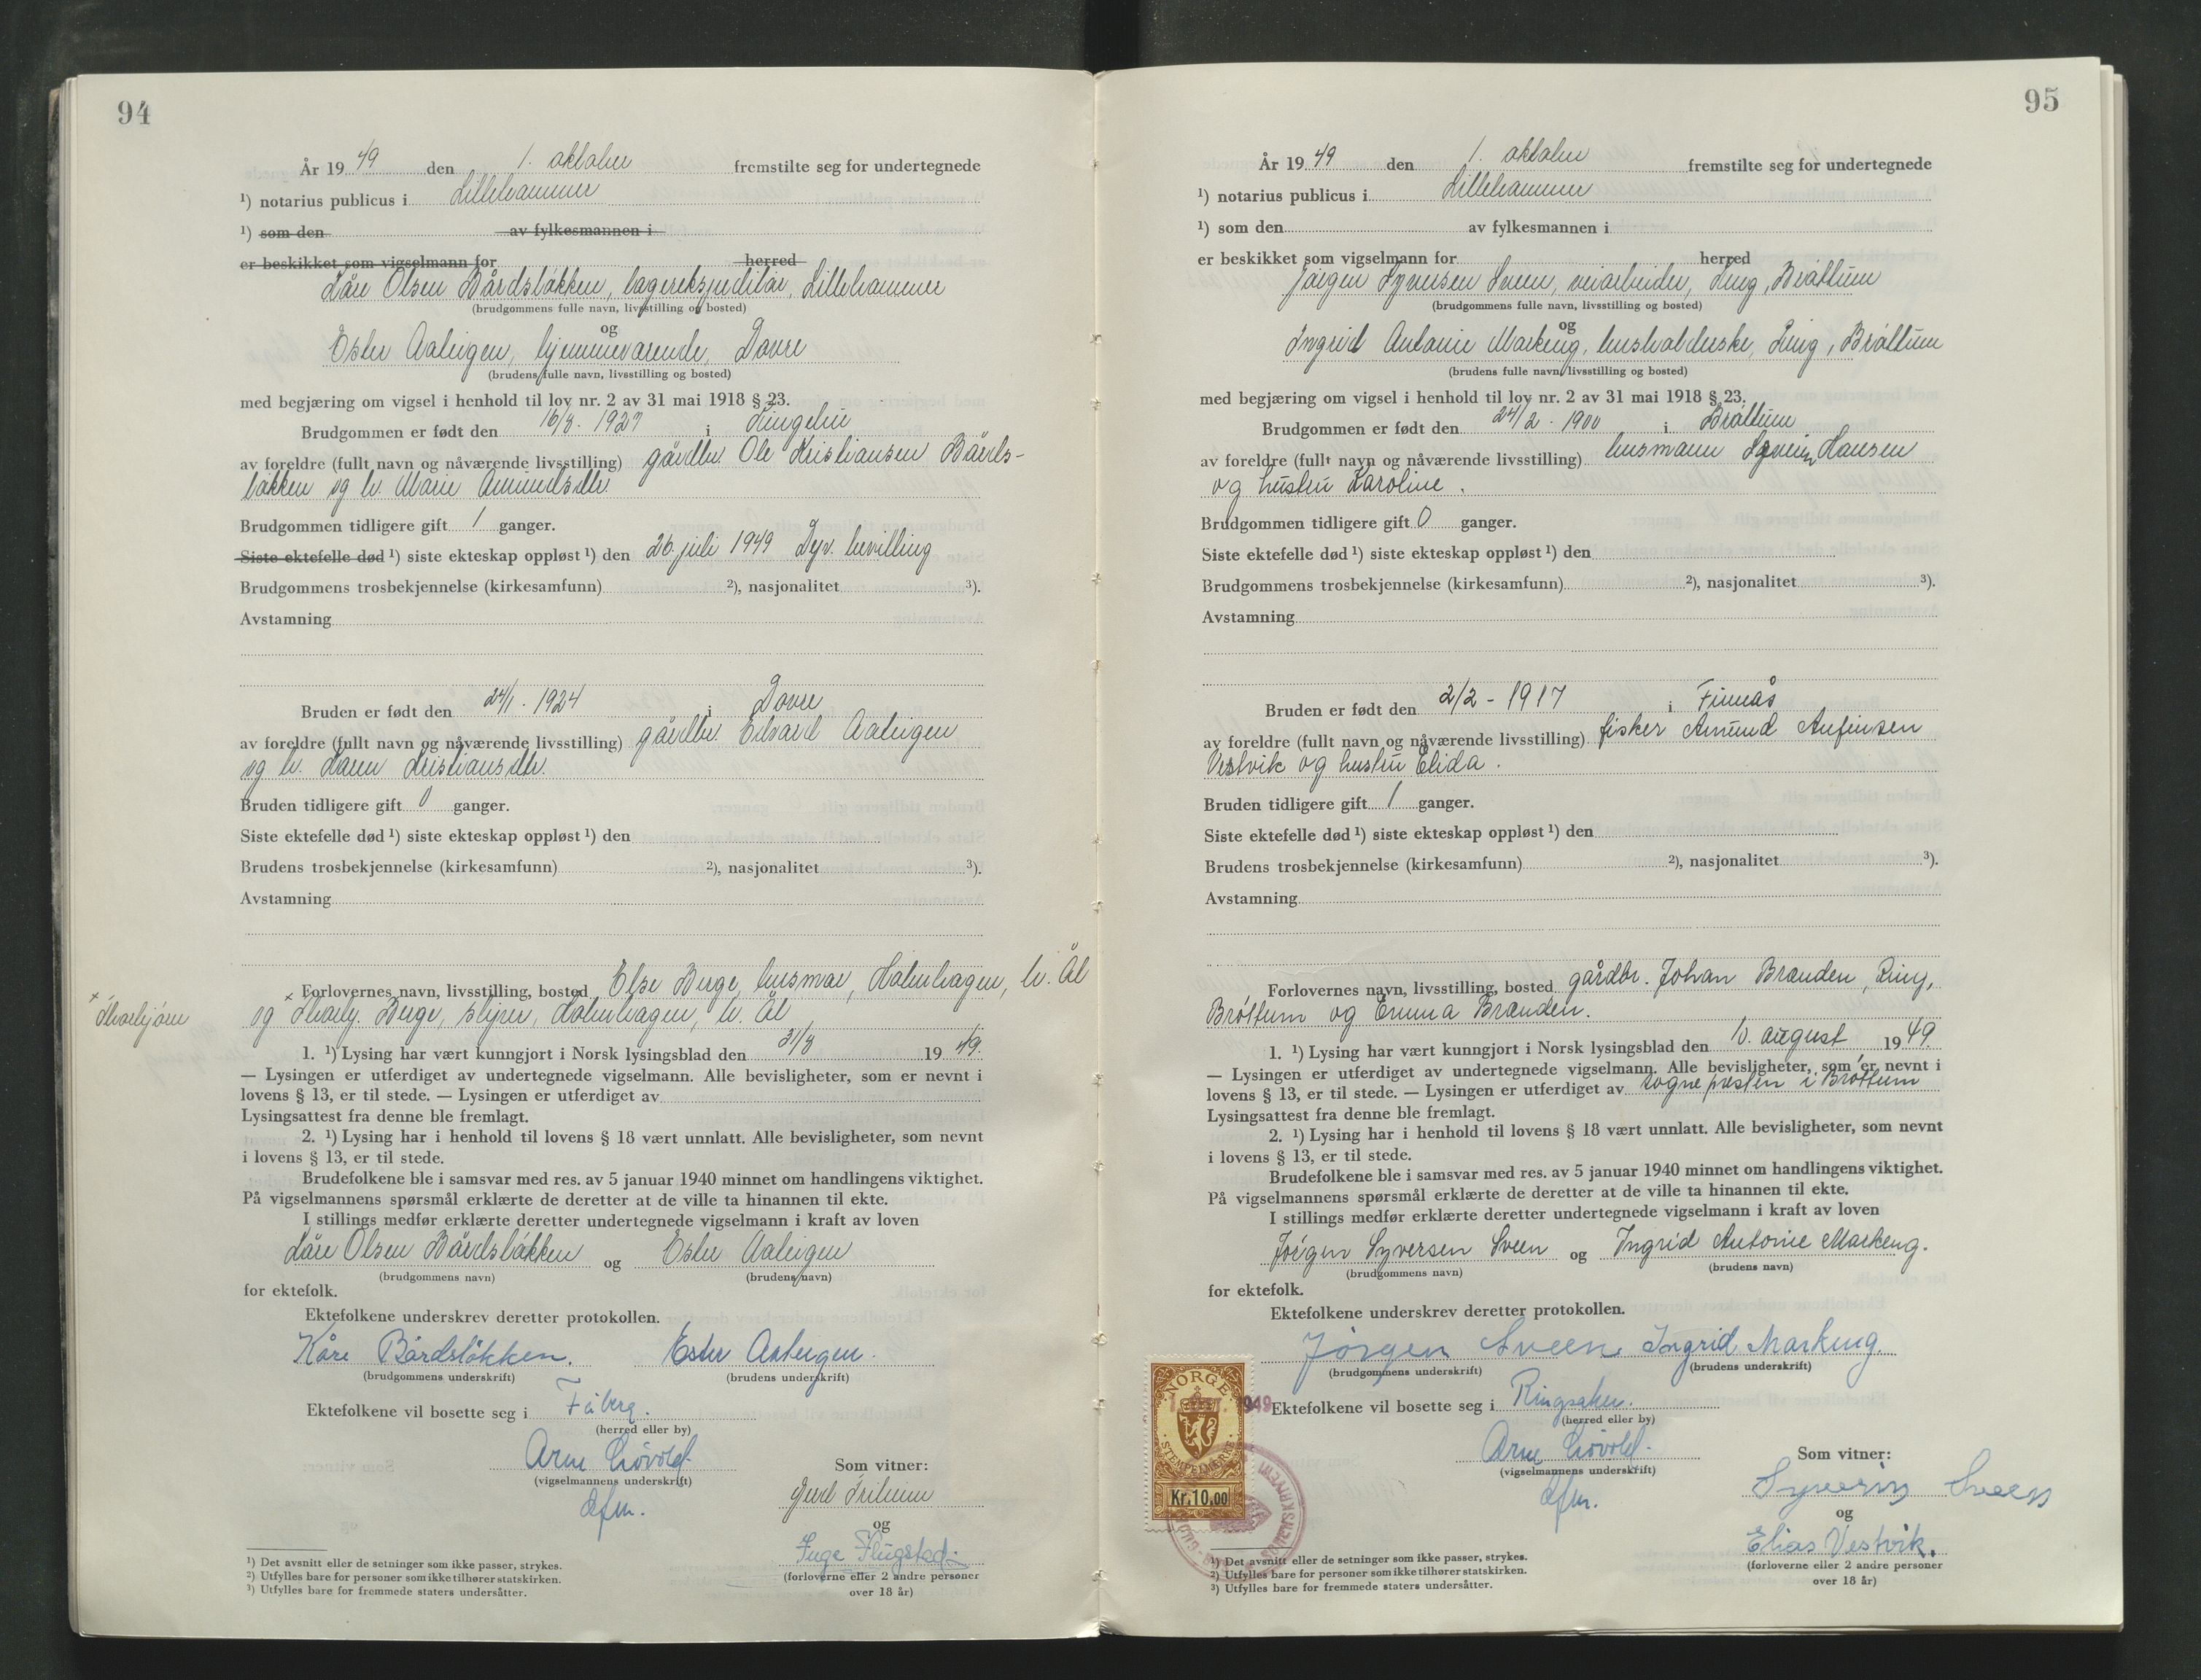 94
År 19 49 den 1. oktober fremstilte seg for undertegnede
¹) notarius publicus i Lillehammer
¹) som den av fylkesmannen i
er beskikket som vigselmann for herred
Kåre Olsen Bårdsløkken, lagerekspeditør, Lillehammer
(brudgommens fulle navn, livsstilling og bosted)
og
Ester Aaleigen, hjemmeværende, Dovre
(brudens fulle navn, livsstilling og bosted)
med begjæring om vigsel i henhold til lov nr. 2 av 31 mai 1918 § 23.
Brudgommen er født den 16/8. 1927 i Ringebu
av foreldre (fullt navn og nåværende livsstilling) gårdbr. Ole Kristiansen Bårds-
løkken og h. Marie Amundsdtr.
Brudgommen tidligere gift 1 ganger.
Siste ektefelle død ¹) siste ekteskap oppløst ¹) den 26. juli 1949 Dep. bevilling
Brudgommens trosbekjennelse (kirkesamfunn) ²), nasjonalitet ³).
Avstamning
Bruden er født den 24/1. 1924 i Dovre
av foreldre (fullt navn og nåværende livsstilling) gårdbr. Edvard Aaleigen
og h. Karen Kristiansdtr.
Bruden tidligere gift 0 ganger.
Siste ektefelle død ¹) siste ekteskap oppløst ¹) den
Brudens trosbekjennelse (kirkesamfunn) ²), nasjonalitet ³).
Avstamning
Forlovernes navn, livsstilling, bosted Else Berge, husmor, Holmhagen, h. Ål
× Thorbjørn
og × Thorbj. Berge, styrer, Holmhagen, h. Ål
1. ¹) Lysing har vært kunngjort i Norsk lysingsblad den 31/8 19 49.
— Lysingen er utferdiget av undertegnede vigselmann. Alle bevisligheter, som er nevnt i
lovens § 13, er til stede. — Lysingen er utferdiget av
Lysingsattest fra denne ble fremlagt.
2. ¹) Lysing har i henhold til lovens § 18 vært unnlatt. Alle bevisligheter, som nevnt
i lovens § 13, er til stede.
Brudefolkene ble i samsvar med res. av 5 januar 1940 minnet om handlingens viktighet.
På vigselmannens spørsmål erklærte de deretter at de ville ta hinannen til ekte.
I stillings medfør erklærte deretter undertegnede vigselmann i kraft av loven
Kåre Olsen Bårdsløkken og Ester Aaleigen
(brudgommens navn) (brudens navn)
for ektefolk.
Ektefolkene underskrev deretter protokollen.
Kåre Bårdsløkken. Ester Aaleigen.
(brudgommens underskrift) (brudens underskrift)
Ektefolkene vil bosette seg i Fåberg.
(herred eller by)
Arne Løvold
(vigselmannens underskrift)
dfm.
Som vitner:
Gerd
og
Inge Flugstad
(forloverne eller 2 andre personer
over 18 år)
¹) Det avsnitt eller de setninger som ikke passer, strykes.
²) Utfylles bare for personer som ikke tilhører statskirken.
³) Utfylles bare for fremmede staters undersåtter.
95
År 19 49 den 1. oktober fremstilte seg for undertegnede
¹) notarius publicus i Lillehammer
¹) som den av fylkesmannen i
er beskikket som vigselmann for herred
Jørgen Syversen Sveen, veiarbeider, Ring, Brøttum
(brudgommens fulle navn, livsstilling og bosted)
og
Ingrid Antonie Markeng, husholderske, Ring, Brøttum
(brudens fulle navn, livsstilling og bosted)
med begjæring om vigsel i henhold til lov nr. 2 av 31 mai 1918 § 23.
Brudgommen er født den 24/2. 1900 i Brøttum
av foreldre (fullt navn og nåværende livsstilling) husmann Syverin Hansen
og hustru Karoline.
Brudgommen tidligere gift 0 ganger.
Siste ektefelle død ¹) siste ekteskap oppløst ¹) den
Brudgommens trosbekjennelse (kirkesamfunn) ²), nasjonalitet ³).
Avstamning
Bruden er født den 2/2 - 1917 i Finnås
av foreldre (fullt navn og nåværende livsstilling) fisker Amund Anfinsen
Vestvik og hustru Elida.
Bruden tidligere gift 1 ganger.
Siste ektefelle død ¹) siste ekteskap oppløst ¹) den
Brudens trosbekjennelse (kirkesamfunn) ²), nasjonalitet ³).
Avstamning
Forlovernes navn, livsstilling, bosted gårdbr. Johan Brænden, Ring,
Brøttum og Emma Brænden.
1. ¹) Lysing har vært kunngjort i Norsk lysingsblad den 10. august 19 49
— Lysingen er utferdiget av undertegnede vigselmann. Alle bevisligheter, som er nevnt i
lovens § 13, er til stede. — Lysingen er utferdiget av sogneprosten i Brøttum
Lysingsattest fra denne ble fremlagt.
2. ¹) Lysing har i henhold til lovens § 18 vært unnlatt. Alle bevisligheter, som nevnt
i lovens § 13, er til stede.
Brudefolkene ble i samsvar med res. av 5 januar 1940 minnet om handlingens viktighet.
På vigselmannens spørsmål erklærte de deretter at de ville ta hinannen til ekte.
I stillings medfør erklærte deretter undertegnede vigselmann i kraft av loven
Jørgen Syversen Sveen og Ingrid Antonie Markeng.
(brudgommens navn) (brudens navn)
for ektefolk.
Ektefolkene underskrev deretter protokollen.
Jørgen Sveen Ingrid Markeng.
(brudgommens underskrift) (brudens underskrift)
Ektefolkene vil bosette seg i Ringsaker.
(herred eller by)
NORGE
STEMPELMERKE
Kr. 10.00
949
Arne Løvold
(vigselmannens underskrift)
dfm.
Som vitner:
Syverin Sveen
og
Elias Vestvik.
(forloverne eller 2 andre personer
over 18 år)
¹) Det avsnitt eller de setninger som ikke passer, strykes.
²) Utfylles bare for personer som ikke tilhører statskirken.
³) Utfylles bare for fremmede staters undersåtter.